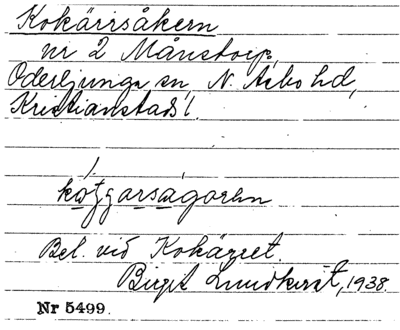 Kokärrsåkern
nr 2 Månstorp,
Oderljunga sn, N. Åsbo hd,
Kristianstads l.
Bel. vid Kokärret.
Birgit Lundkvist, 1938.
Nr 5499.